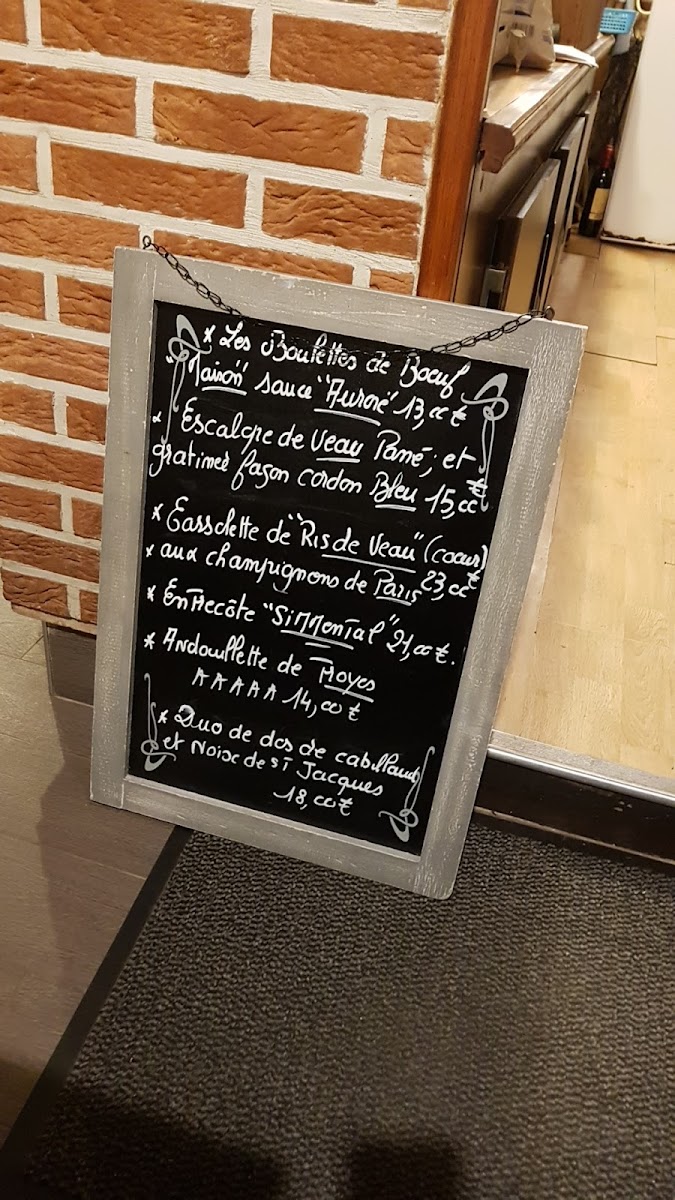 * Les Boulettes de Boeuf
"Maison" sauce "Aurore" 13,00€
* Escalope de Veau Pané, et
gratinée façon cordon Bleu 15,00€
* Cassolette de "Ris de Veau" (coeur)
* aux champignons de Paris 23,00€
* Entrecôte "Simmental" 21,00€.
* Andouillette de Troyes
AAAAA 14,00€
* Duo de dos de cabillaud
et Noix de St Jacques
18,00€